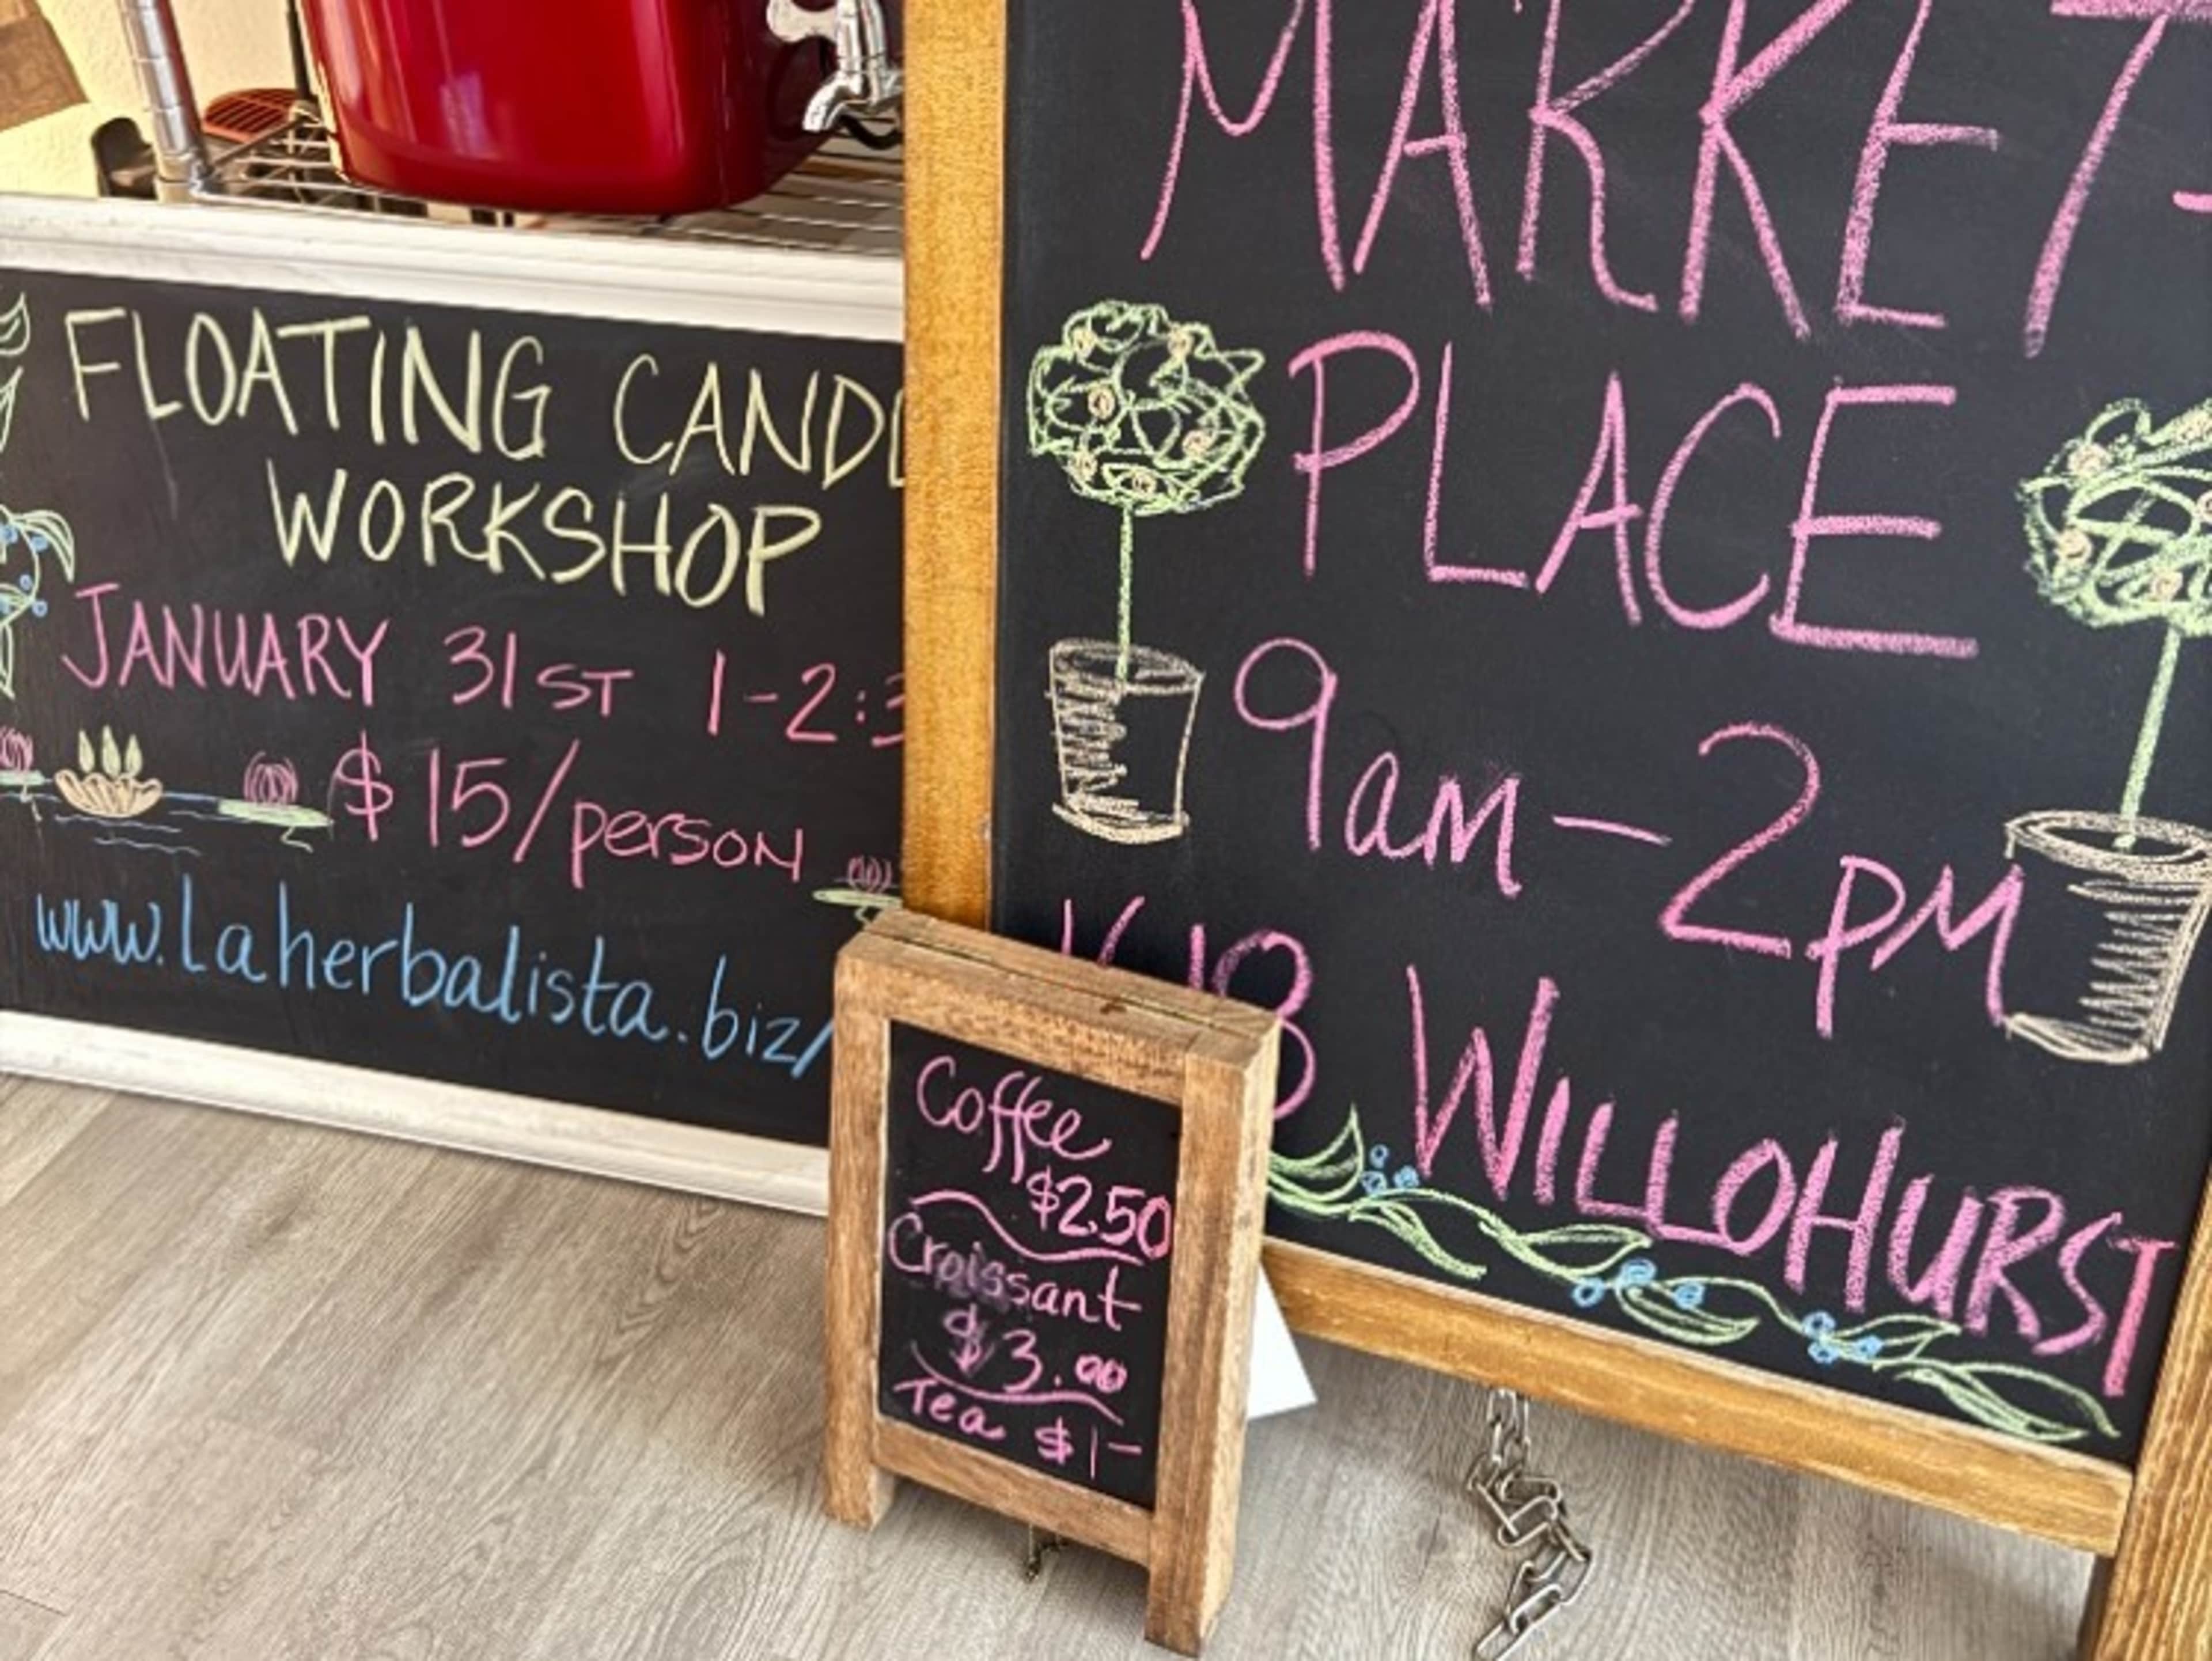 FLOATING CAND
WORKSHOP
JANUARY 31ST 1-2:3
$15/person
www.Laherbalista.biz/
MARKET-
PLACE
9am-2pm
WILLOHURST
Coffee
$2.50
Croissant
$3.00
Tea $1-